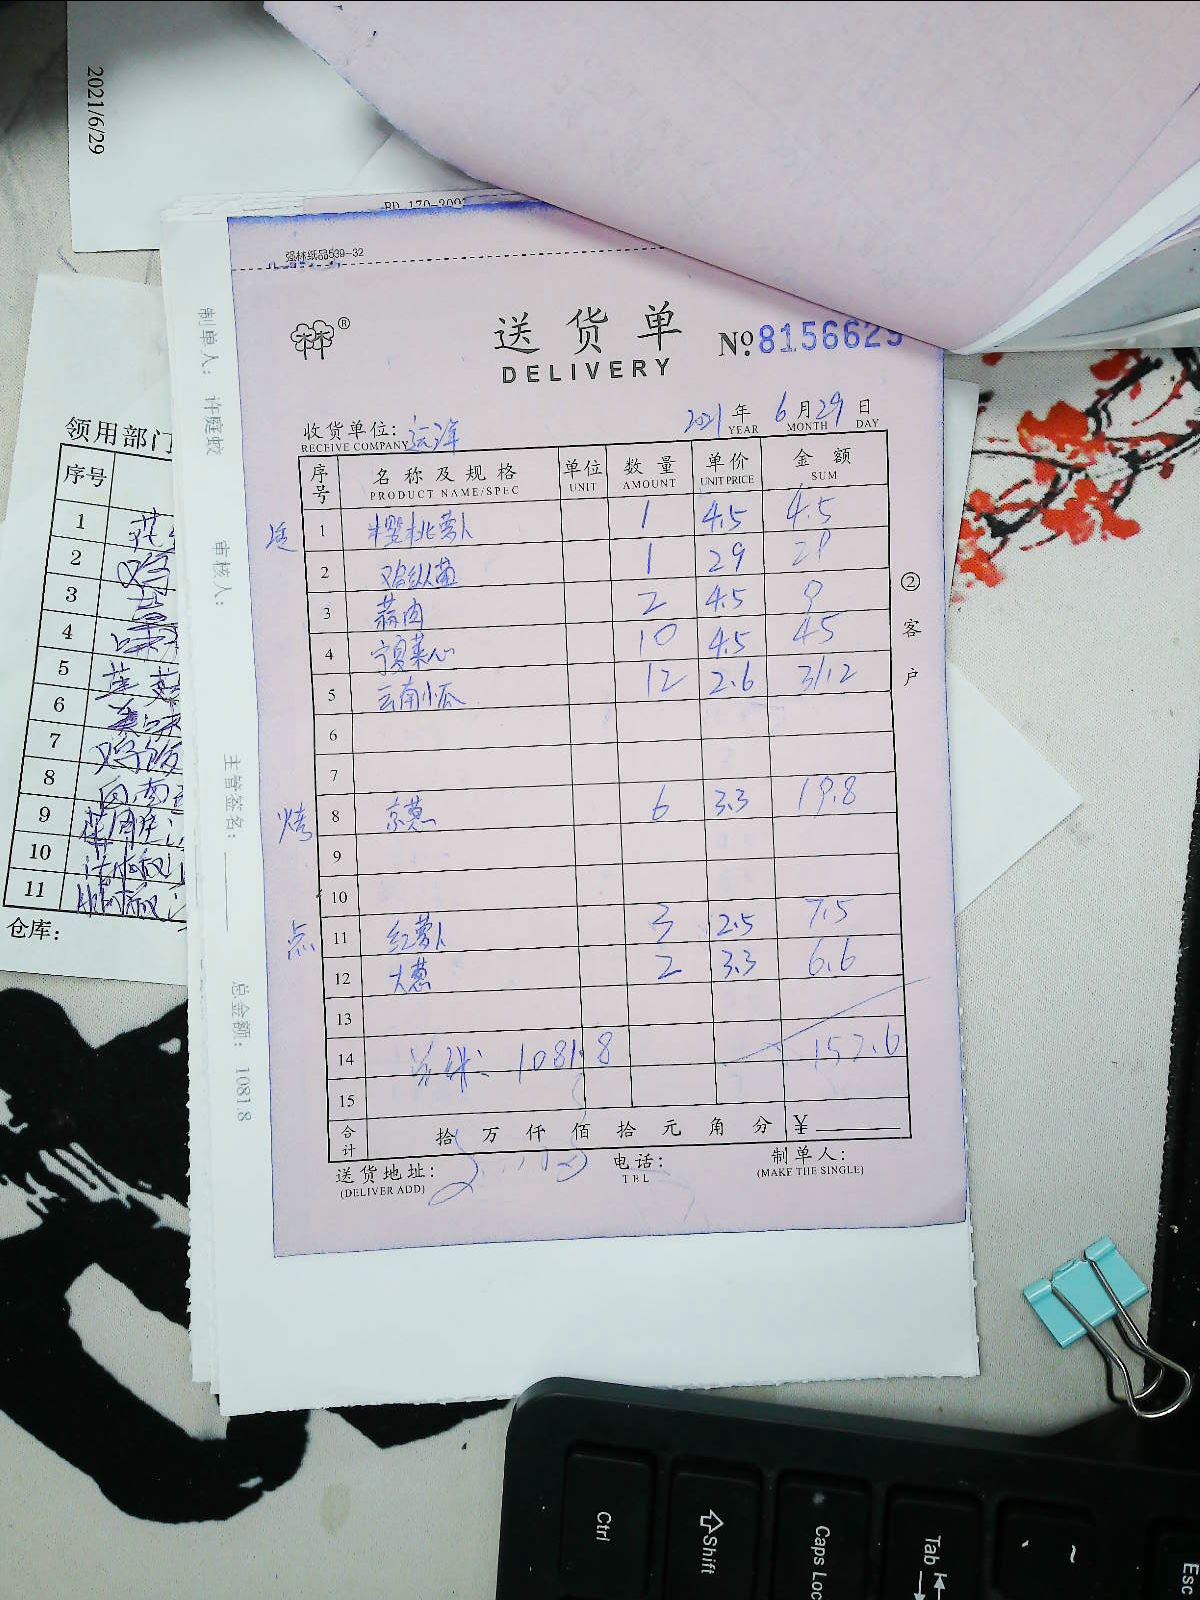 2021/6/29
强林纸品539-32
送货单
DELIVERY
№8156629
收货单位:
RECEIVE COMPANY
2021年 6月29日
YEAR MONTH DAY
序号 名称及规格 单位 数量 单价 金额
PRODUCT NAME/SPEC UNIT AMOUNT UNIT PRICE SUM
1 樱桃萝卜 1 4.5 4.5
2 鸡纵菌 1 29 29
3 蒜肉 2 4.5 9
4 宁夏菜心 10 4.5 45
5 云南小瓜 12 2.6 31.2
6
7
烤 8 京葱 6 3.3 19.8
9
10
点 11 红萝卜 3 2.5 7.5
12 大葱 2 3.3 6.6
13
14 1081.8 152.6
15
合计 拾万仟佰拾元角分 ¥
送货地址: 电话: 制单人:
(DELIVER ADD) TEL (MAKE THE SINGLE)
②客户
制单人: 许庭蛟
审核人:
主管签名:
总金额: 1081.8
领用部门
序号
1
2
3
4
5
6
7
8
9
10
11
仓库:
Ctrl
Shift
Caps Loc
Tab
~
Esc